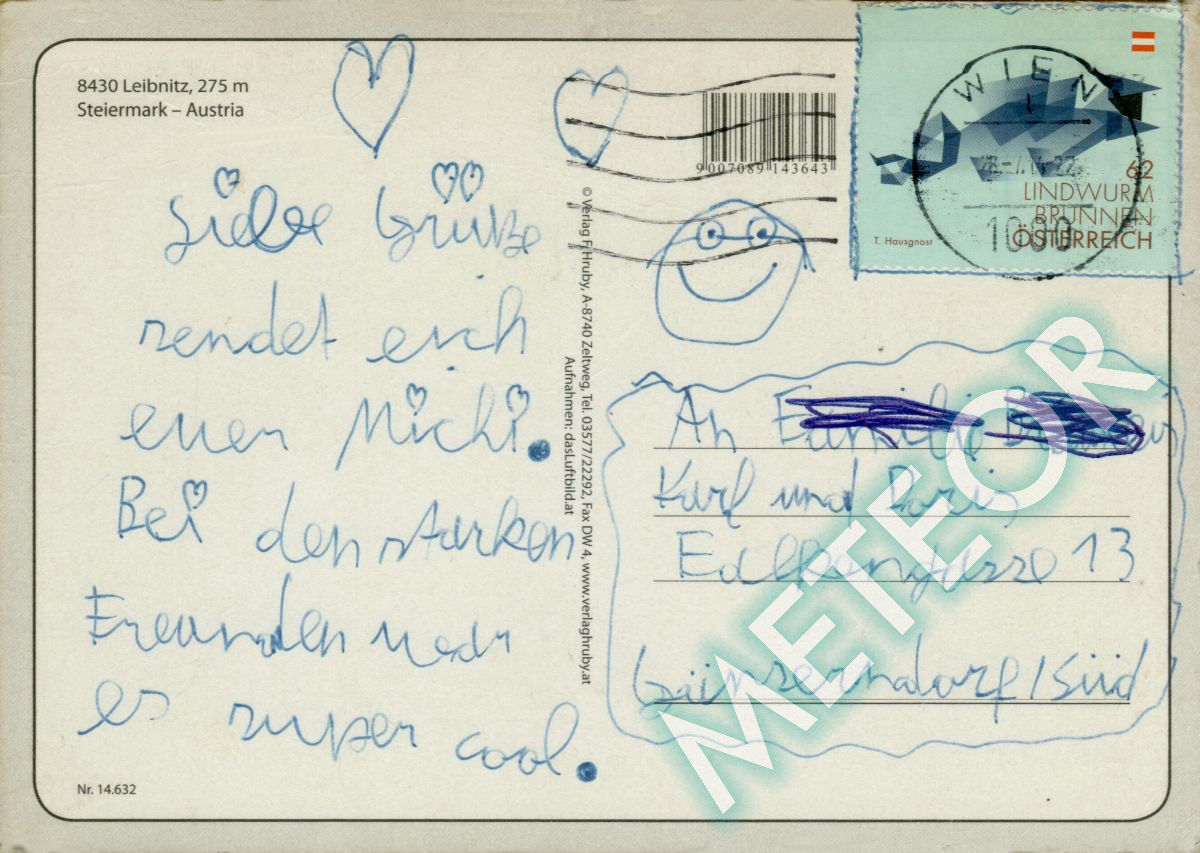 8430 Leibnitz, 275 m
Steiermark – Austria
Liebe Grüße
sendet euch
euer Michi.
Bei den starken
Freunden war
es super cool.
Nr. 14.632
© Verlag F. Hruby, A-8740 Zeltweg, Tel. 03577/22292, Fax DW 4, www.verlaghruby.at
Aufnahmen: dasLuftbild.at
9007089 143643
WIEN
1
1000
62
LINDWURM
BRUNNEN
ÖSTERREICH
T. Hausgnost
An Familie
Karl und Doris
13
Gänserndorf/Süd
METEOR